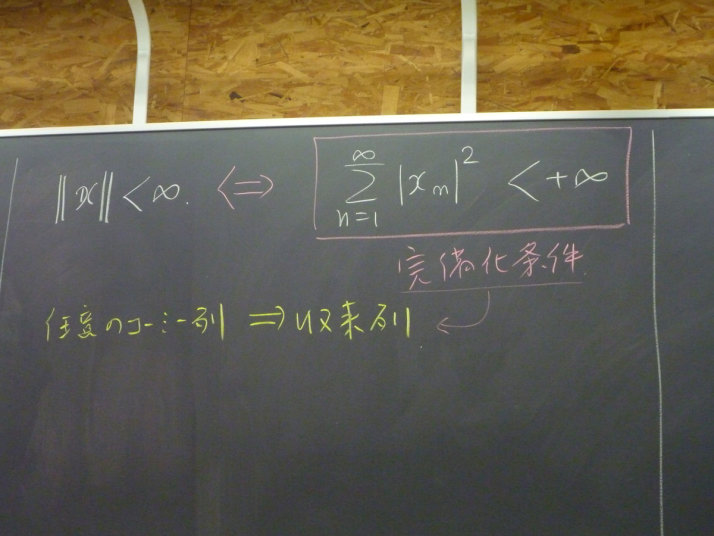 ‖x‖ < ∞. ⇔ ∑_{n=1}^{∞} |x_n|^2 < +∞
完備化条件
任意のコーシー列 ⇒ 収束列